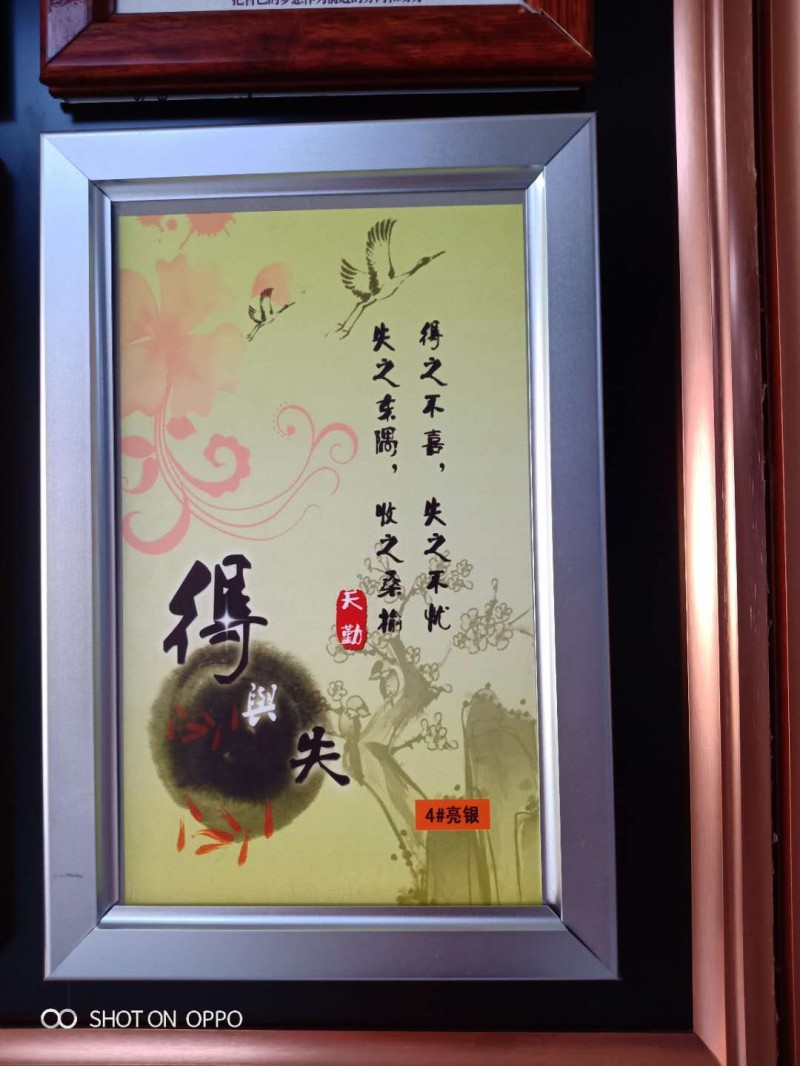 得之不喜，失之不忧
失之东隅，收之桑榆
天勤
得與失
4#亮银
SHOT ON OPPO